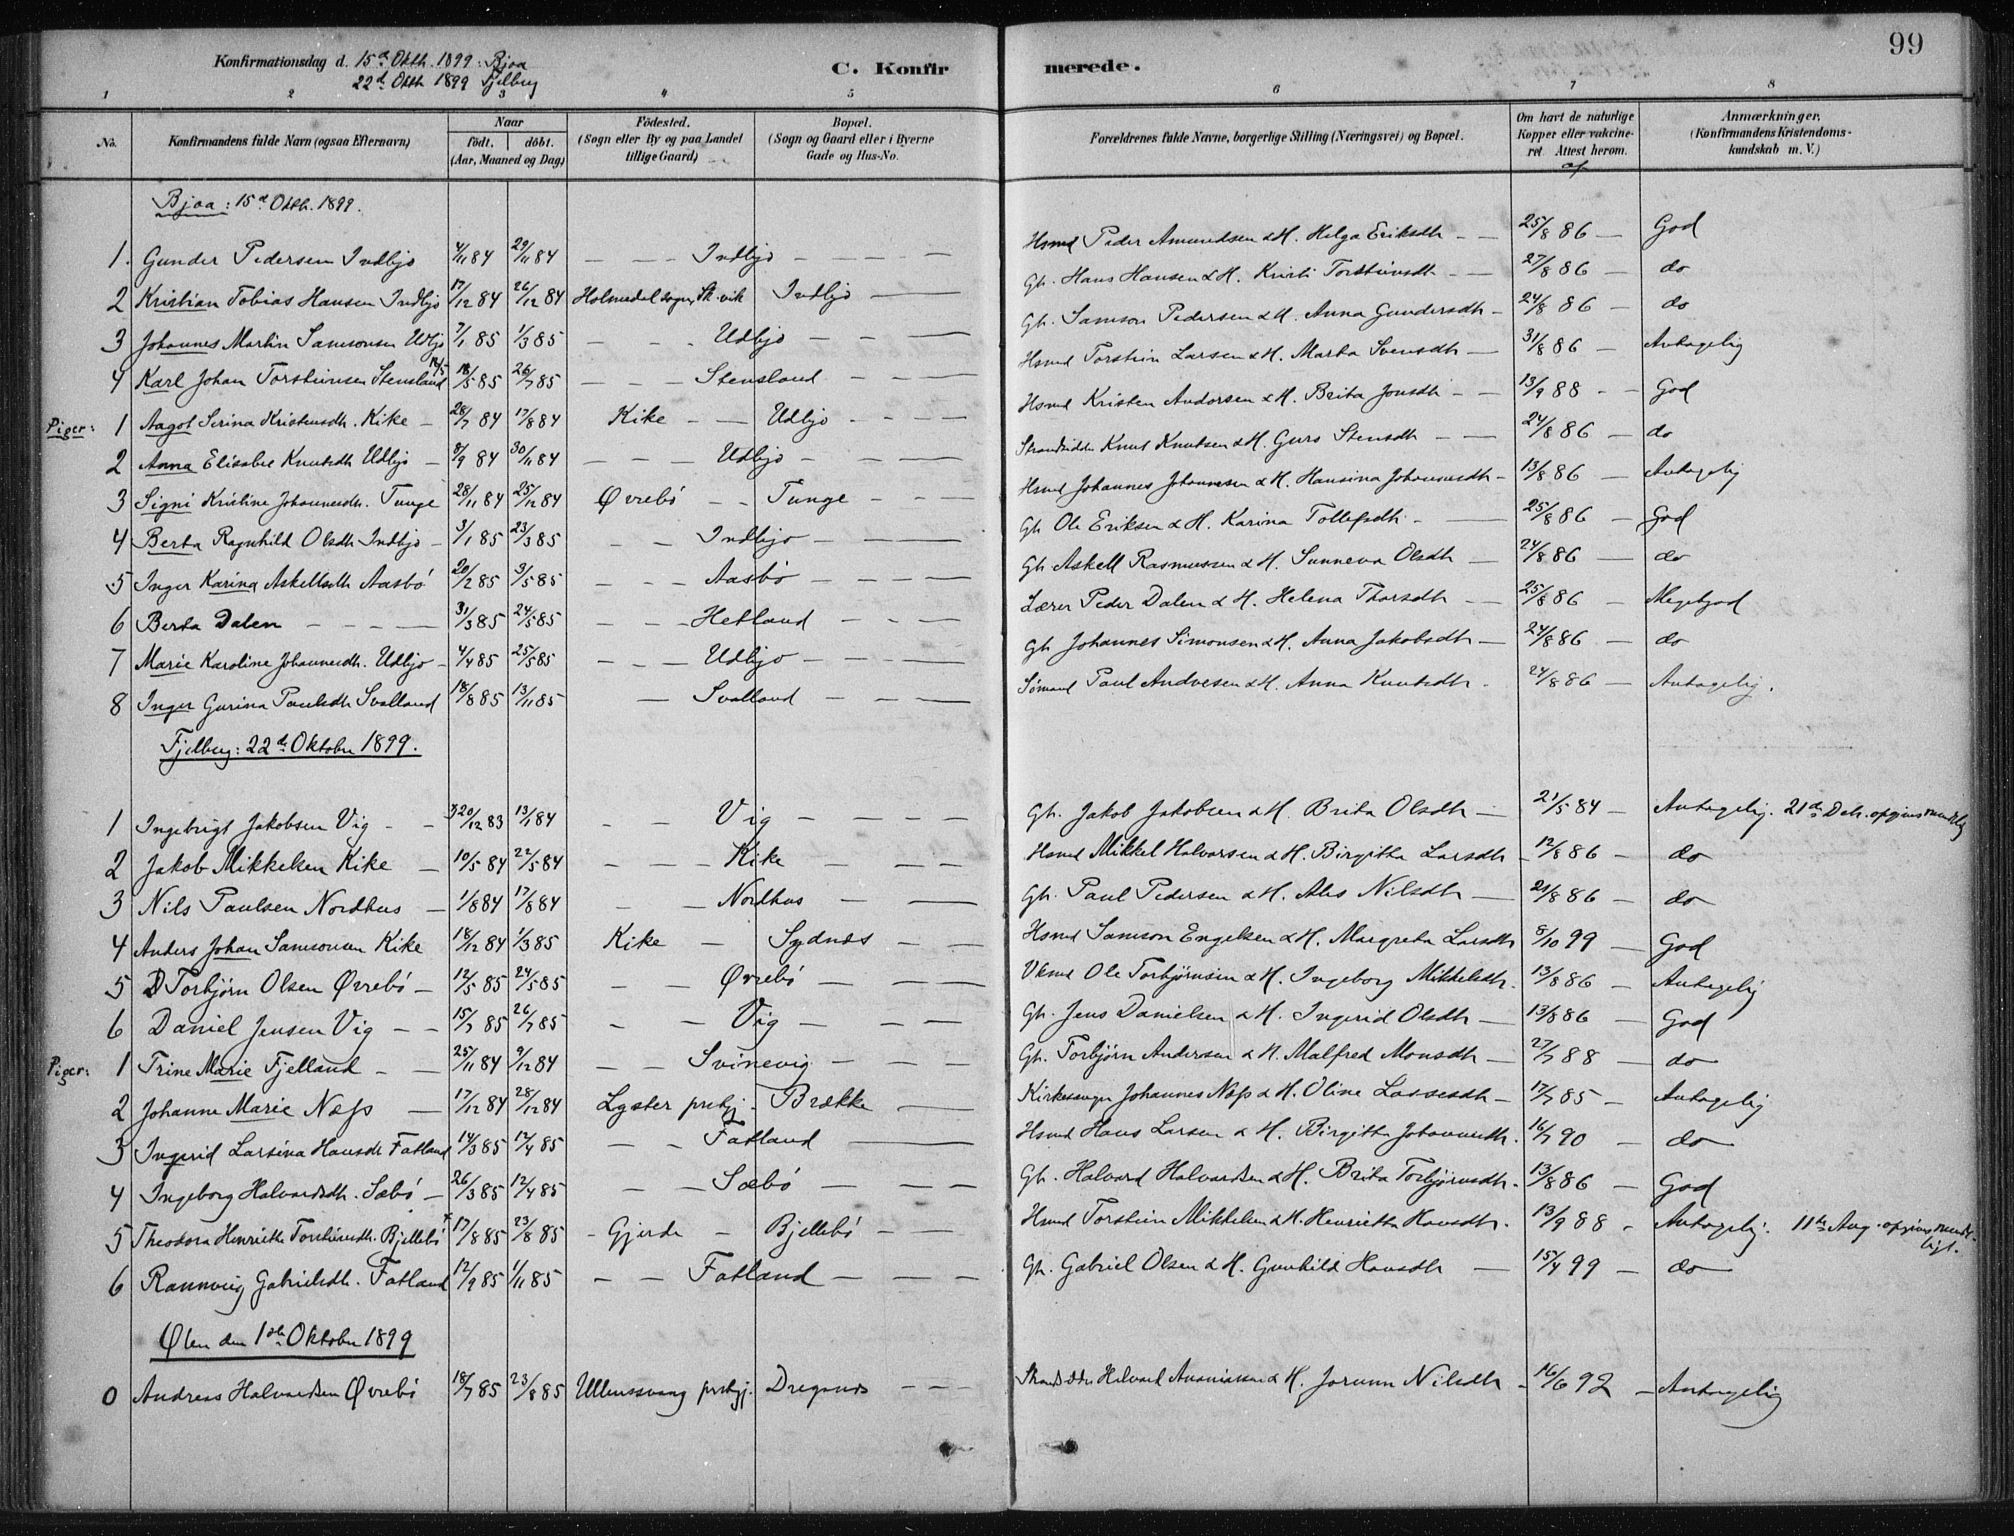 99
Konfirmationsdag d. 15de Oktb. 1899: Bjoa
22d Oktb 1899 Fjelberg
C. Konfirmerede.
1 2 3 4 5 6 7 8
No. Konfirmandens fulde Navn (ogsaa Efternavn) Naar født. døbt. (Aar, Maaned og Dag) Fødested. (Sogn eller By og paa Landet tillige Gaard) Bopæl. (Sogn og Gaard eller i Byerne Gade og Hus-No. Forældrenes fulde Navne, borgerlige Stilling (Næringsvei) og Bopæl. Om havt de naturlige Kopper eller vakcineret. Attest herom. Anmærkninger. (Konfirmandens Kristendomskundskab m. V.)
Bjoa: 15d Oktb. 1899.
1. Gunder Pedersen Indbjo 4/11 84 29/11 84 — Indbjo — Hsmd Peder Amundsen & H. Helga Eriksdtr — 25/8 86 — God
2 Kristian Tobias Hansen Indbjo 17/12 84 26/12 84 Holmedal sogn, Sk.vik Indbjo — Gb. Hans Hansen & H. Kristi Torsteinsdtr — 27/8 86 — do
3 Johannes Martin Samsonsen Udbjo 7/1 85 1/3 85 — Udbjo — Gb. Samson Pedersen & H. Anna Gundersdtr — 24/8 86 — do
4 Karl Johan Torsteinsen Stensland 18/5 85 26/7 85 — Stensland — Hsmd Torstein Larsen & H. Marta Svensdtr — 31/8 86 — Antagelig
Piger: 1 Aagot Serina Kristensdtr. Kike — 28/7 84 17/8 84 Kike — Udbjo — Hsmd Kristen Andersen & H. Brita Jonsdtr — 13/9 88 — God
2 Anna Elisabet Knutsdtr Udbjo — 8/9 84 30/11 84 — Udbjo — Strandsidder Knut Knutsen & H. Guro Stensdtr — 24/8 86 — do
3 Signi Kristine Johannesdtr. Tunge 28/11 84 25/12 84 Øvrebø — Tunge — Hsmd Johannes Johannesen & H. Hansina Johannesdtr — 13/8 86 — Antagelig
4 Berta Ragnhild Olsdtr Indbjo — 3/1 85 23/3 85 — Indbjo — Gb Ole Eriksen & H. Karina Tollefsdtr — 25/8 86 — God
5 Inger Karina Askellsdtr Aasbø 20/2 85 3/5 85 — Aasbø — Gb Askell Rasmussen & H. Sunneva Olsdtr 24/8 86 — do
6 Berta Dalen — 31/3 85 24/5 85 — Hetland — Lærer Peder Dalen & H. Helena Thorsdtr — 25/8 86 — Megetgod
7 Marie Karoline Johannesdtr. Udbjo — 4/4 85 25/5 85 — Udbjo — Gb Johannes Simonsen & H. Anna Jakobsdtr — 24/8 86 — do
8 Inger Gurina Paulsdtr Svalland 18/8 85 13/11 85 — Svalland — Sømand Paul Andresen & H. Anna Knutsdtr. 24/8 86 — Antagelig.
Fjelberg: 22de Oktober 1899.
1 Ingebrigt Jakobsen Vig — 20/12 83 13/1 84 — Vig — Gb. Jakob Jakobsen & H. Brita Olsdtr — 21/5 84 — Antagelig. 21de Deb. opgives mundtlig
2 Jakob Mikkelsen Kike — 10/5 84 22/5 84 — Kike — Hsmd Mikkel Halvorsen & H. Birgitta Larsdtr — 12/8 86 — do
3 Nils Paulsen Nordhus — 1/8 84 17/8 84 — Nordhus — Gb. Paul Pedersen & H. Ales Nilsdtr — 21/8 86 — do
4 Anders Johan Samsonsen Kike 18/12 84 1/3 85 Kike — Sydnæs — Hsmd Samson Engelsen & H. Margreta Larsdtr 8/10 99 — God
5 Torbjørn Olsen Øvrebø — 12/5 85 24/5 85 — Øvrebø — Ole Torbjørnsen & H. Ingeborg Mikkelsdtr. 13/8 86 — Antagelig
6 Daniel Jensen Vig — 15/7 85 26/7 85 — Vig — Gb. Jens Danielsen & H. Ingerid Olsdtr — 13/8 86 — God
Piger: 1 Trine Marie Fjelland — 25/11 84 9/12 84 — Svinevig — Gb. Torbjørn Andersen & H. Malfred Monsdtr — 27/7 88 — do
2 Johanne Marie Næss — 17/12 84 28/12 84 Lyster prstgj. Brække — Kirkesanger Johannes Næss & H. Oline Lassesdtr — 17/7 85 — Antagelig
3 Ingerid Larsina Hansdtr Fatland 14/3 85 17/4 85 — Fatland — Hsmd Hans Larsen & H. Birgitta Johannesdtr. 16/7 90 — do
4 Ingeborg Halvardsdtr. Sæbø — 26/3 85 12/4 85 — Sæbø — Gb. Halvard Halvardsen & H. Brita Torbjørnsdtr. 13/8 86 — God
5 Theodora Henriette Torsteinsdtr. Bjellebø 17/8 85 23/8 85 — Gjerde — Bjellebø — Hsmd Torstein Mikkelsen & H. Henrietta Hansdtr. 13/9 88 — Antagelig. 11te Aug. opgives mundtligt.
6 Rannveig Gabrielsdtr. Fatland 12/9 85 1/11 85 — Fatland — Gb. Gabriel Olsen & H. Gunhild Hansdtr — 15/4 99 — do
Ølen den 1ste Oktober 1899
0 Andreas Halvardsen Øvrebø 18/7 85 23/8 85 Ullensvang prstgj. — Strandsidder Halvard Ananiassen & H. Jorunn Nilsdtr — 16/6 92 — Antagelig